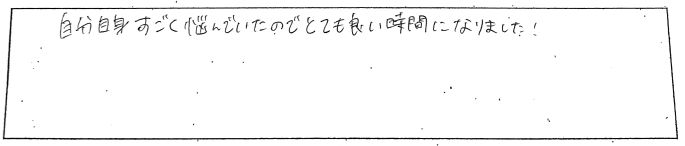 自分自身すごく悩んでいたのでとても良い時間になりました!